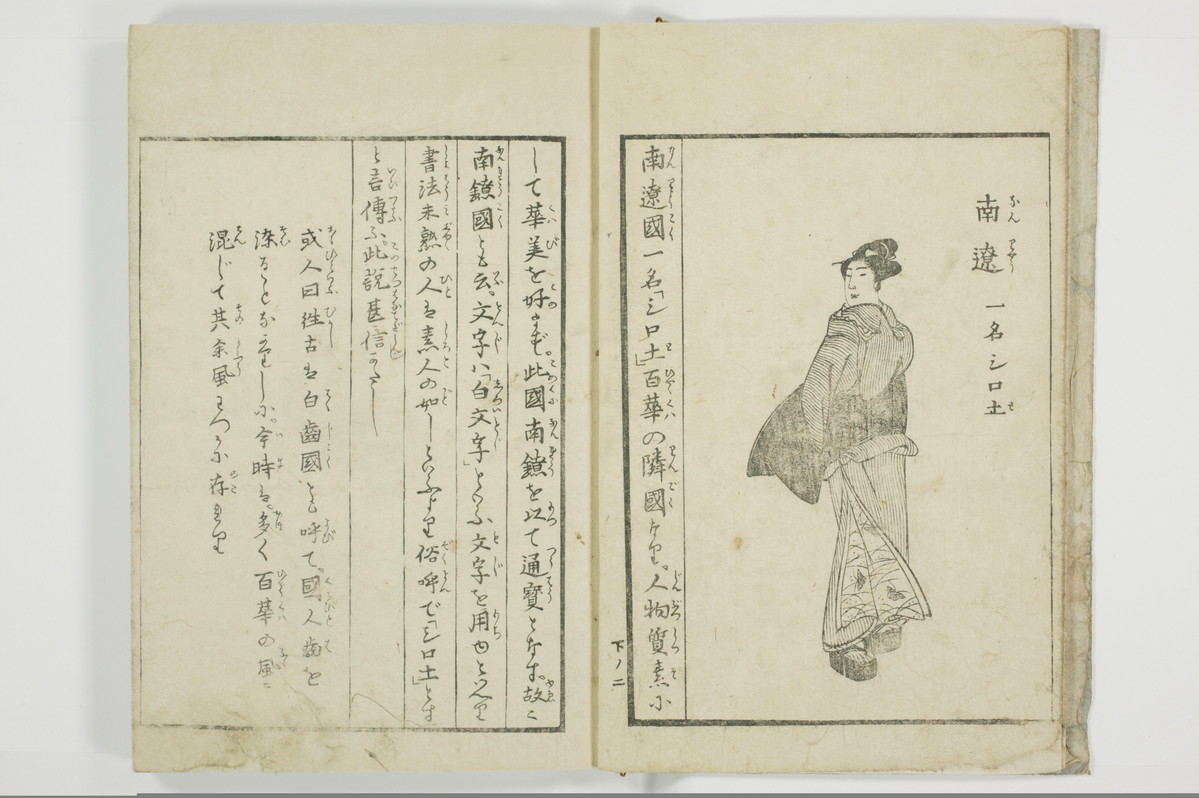 南遼 一名シロ土
南遼國一名「シロ土」百華の隣國なり。人物質素に
下ノ二
して華美を好まず。此國南鐐を以て通寳となす。故に
南鐐國とも云。文字ハ「白文字」といふ文字を用ゆといへり
書法未熟の人は素人の如しといふより俗呼で「シロ土」とす
と言傳ふ。此説甚信じがたし
或人曰往古は白齒國とも呼て。國人齒を
染ることなかりしに。今時は。多く百華の風に
混じて其余風わづかに存せり